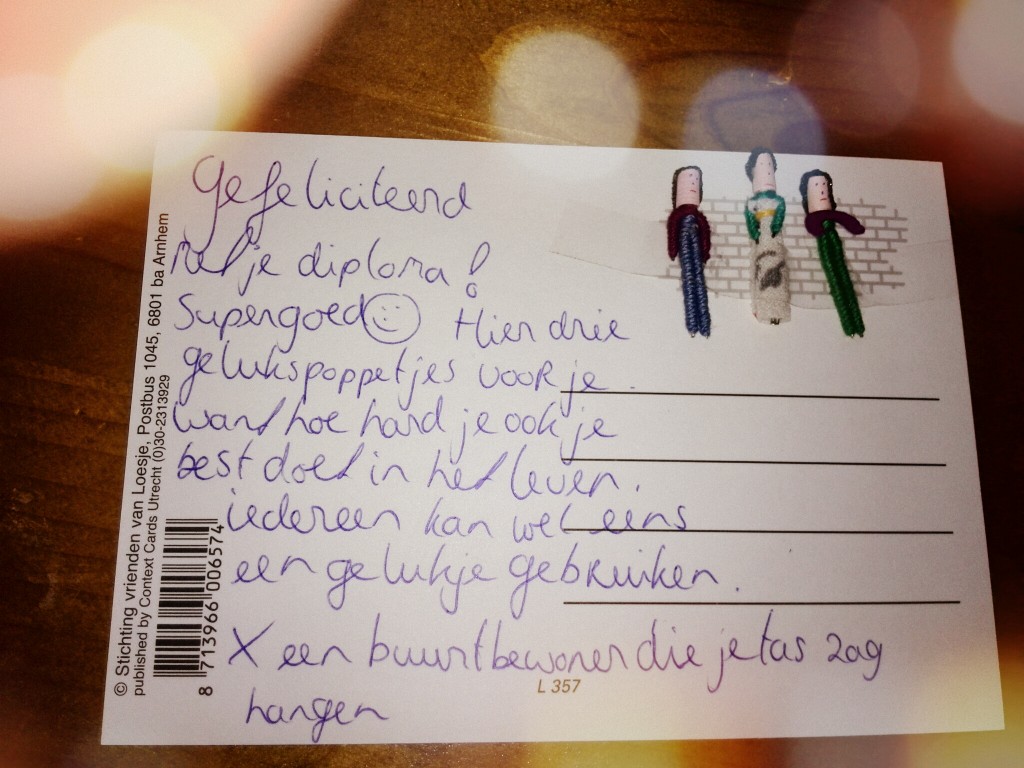 Gefeliciteerd
met je diploma!
Supergoed Hier drie
gelukspoppetjes voor je.
Want hoe hard je ook je
best doet in het leven.
iedereen kan wel eens
een gelukje gebruiken.
X een buurtbewoner die je tas zag
hangen
L 357
© Stichting vrienden van Loesje, Postbus 1045, 6801 ba Arnhem
published by Context Cards Utrecht (0)30-2313929
8 713966 006574